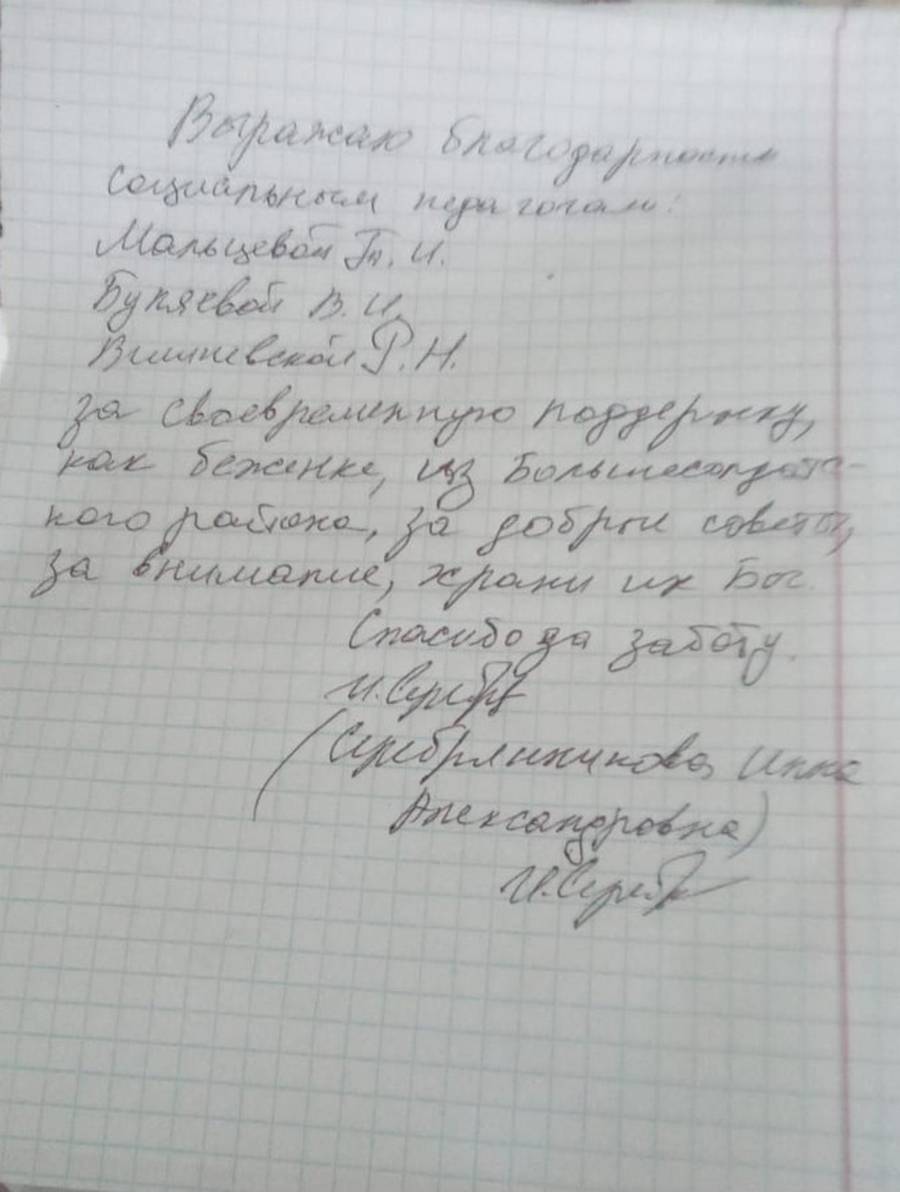 Выражаю благодарность
социальным педагогам:
Мальцевой Т. И.
Букяевой В. И.
Вишневской Р. Н.
за своевременную поддержку,
как беженке, из Большесолдатс-
кого района, за добрые советы,
за внимание, храни их Бог.
Спасибо за заботу.
И. Серебр
(Серебрянникова Инна
Александровна)
И. Серебр